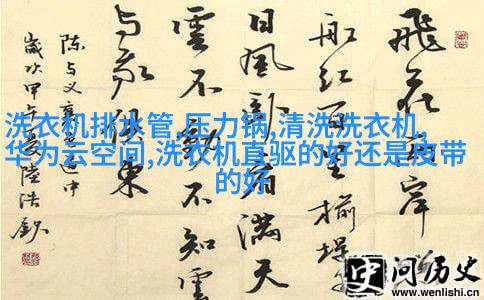 飛花两岸
船红百里榆堤
日風卧看满天
雲不動不知雲
与我俱東
陈与义襄邑道中
歲次甲午夏陸浩
洗衣机排水管,压力锅,清洗洗衣机,
华为云空间,洗衣机直驱的好还是皮带
的好
问历史
www.wenlishi.cn